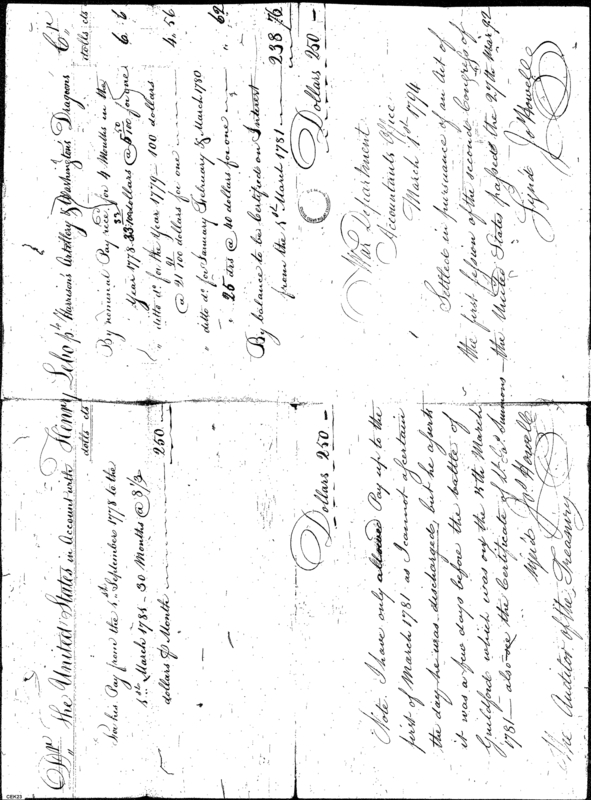 Dr The United States in Account with Henry Leho pte Harrisons Artillery & Washingtons Dragoons Cr
dolls cts
For his Pay from the 1st September 1778 to the
1st March 1781 - 30 Months @ 8 1/3
dollars p Month 250
Dollars 250 -
dolls cts
By nominal Pay recd for 4 Months in the
Year 1778 33 dollars @ for one 6. 6
" ditto do for the Year 1779 - 100 dollars
@ 21 100 dollars for one 4. 56
" ditto do for January February & March 1780
" 25 drs @ 40 dollars for one " 62
By balance to be Certified on Interest
from the 1st March 1781 238 76
Dollars 250 -
Note. I have only allowed Pay up to the
first of March 1781 as I cannot ascertain
the day he was discharged, but he asserts
it was a few days before the battle of
Guildford which was on the 15th March
1781 - also see the Certificate of Lt Simmons
Signed Jos Howell
The Auditor of the Treasury
War Department
Accountants Office
March 1st 1794
Settled in pursuance of an Act of
the first session of the second Congress of
the United States passed the 27th Mar 92
Signd Jos Howell
CEK23